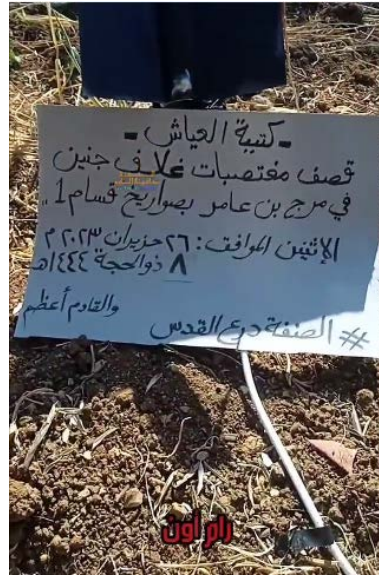 - كتيبة العياش -
قصف مغتصبات غلاف جنين
في مرج بن عامر بصواريخ قسام 1 ,,
الإثنين الموافق: ٢٦ حزيران ٢٠٢٣ م
٨ ذوالحجة ١٤٤٤هـ
والقادم أعظم
# الضفة درع القدس
رام اون